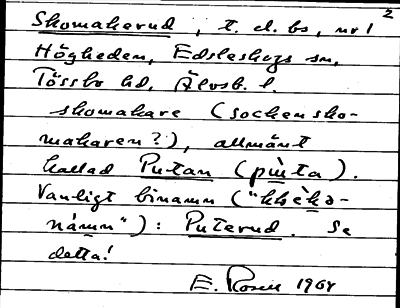 2
Skomakerud, t. d. bs, nr 1
Högheden, Edsleskogs sn,
Tössbo hd, Älvsb. l.
skomakare (sockensko-
makaren?), allmänt
kallad Putan (pùta).
Vanligt binamn ("khèkə-
námn"): Puterud. Se
detta!
E. Rosén 196